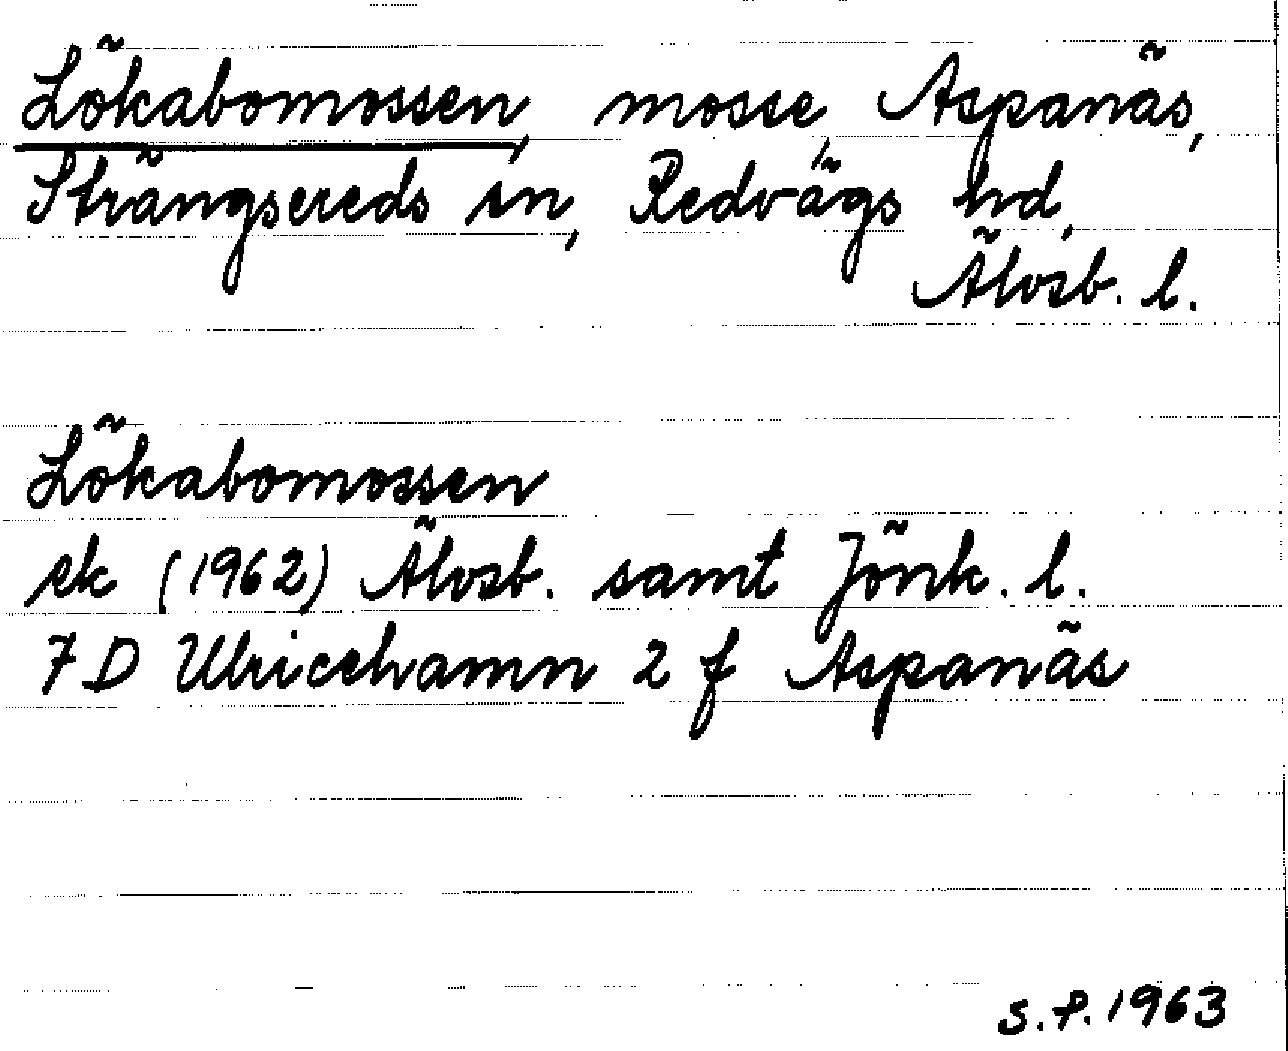 Lökabomossen, mosse, Aspanäs,
Strängsereds sn, Redvägs hd,
Älvsb. l.
Lökabomossen
ek (1962) Älvsb. samt Jönk. l.
7 D Ulricehamn 2 f Aspanäs
S.P. 1963